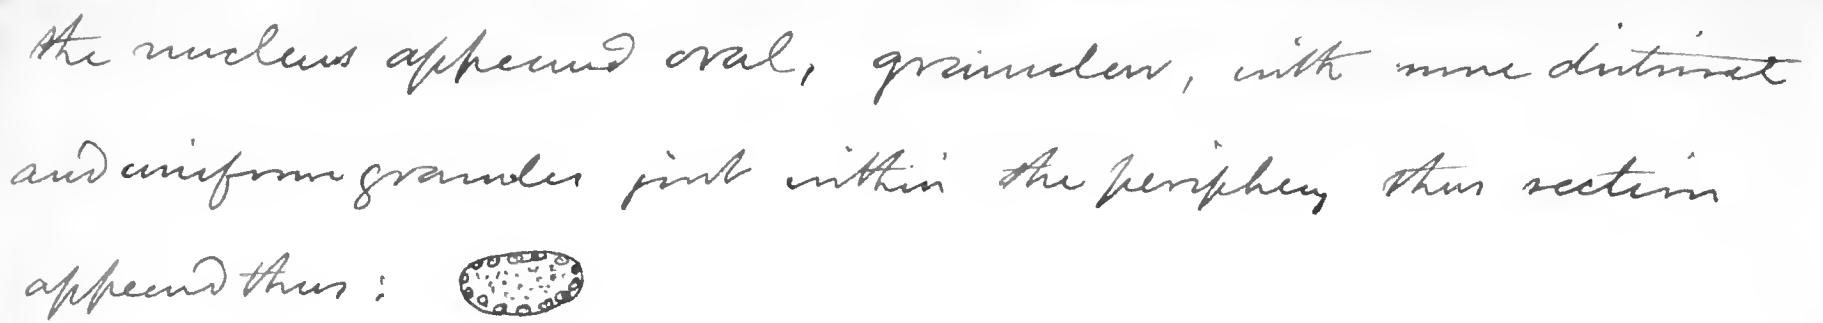 the nucleus appeared oval, granular, with more distinct
and uniform granules just within the periphery thus section
appeared thus: